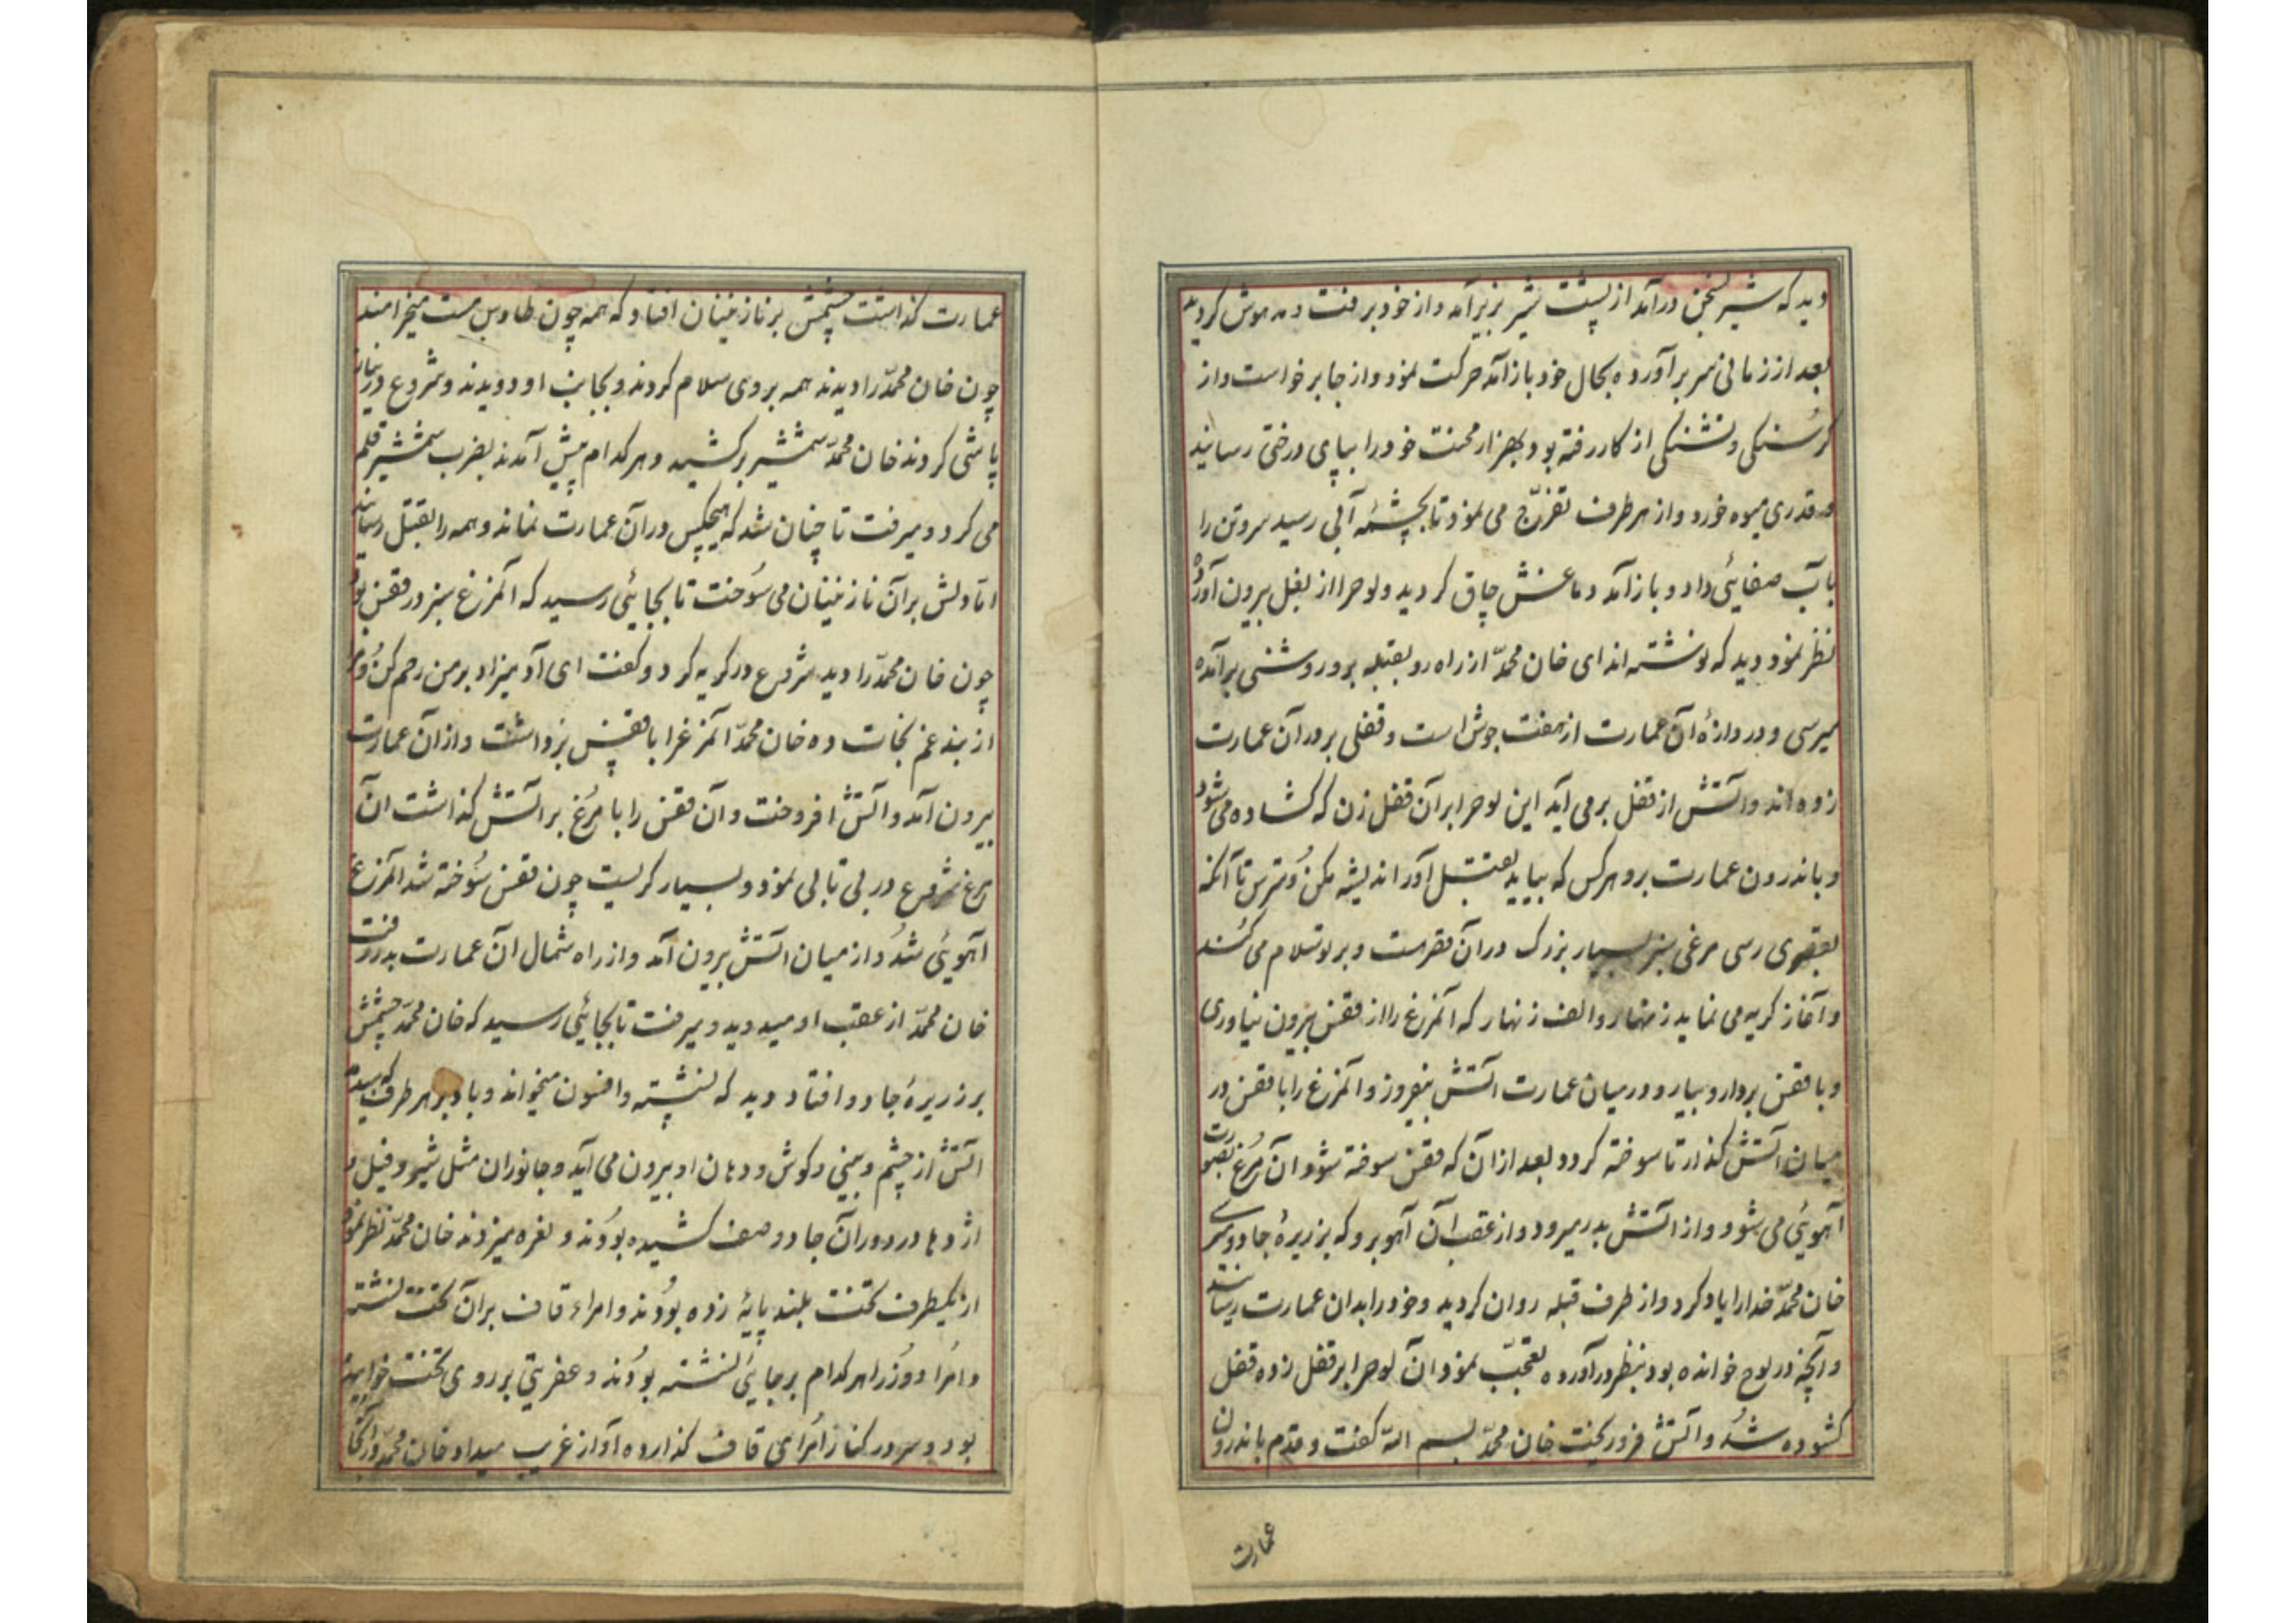 دید که شیر بسخن درآمد از پشت شیر بزیر آمد و از خود برفت و مدهوش کردید
بعد از زمانی سر برآورده بحال خود باز آمد حرکت نمود و از جا برخواست و از
کرسنکی و تشنکی از کار رفته بود بهزار محنت خود را بپای درختی رسانید
و قدری میوه خورد و از هر طرف تفرّج می نمود تا بچشمهٔ آبی رسید سر و تن را
بآب صفائی داد و باز آمد دماغش چاق کردید و لوحرا از بغل بیرون آورد
نظر نمود دید که نوشته اند ای خان محمّد از راه رو بقبله برو روشنی برآمده
میرسی و دروازهٔ آن عمارت از هفت جوش است و قفلی بر در آن عمارت
زده اند و آتش از قفل برمی آید این لوحرا بر آن قفل زن که کشاده می شود
و باندرون عمارت برو هر کس که بیاید بقتل آور اندیشه مکن و مترس تا آنکه
بقصری رسی مرغی سبز بسیار بزرک در آن قصرست و بر تو سلام می کند
و آغاز کریه می نماید زنهار و الف زنهار که آنمرغ را از قفس بیرون نیاوری
و با قفس بردار و بیار و در میان عمارت آتش بیفروز و آنمرغ را با قفس در
میان آتش کذار تا سوخته کردد بعد از آن که قفس سوخته شود آن مرغ بصورت
آهوئی می شود و از آتش بدر میرود و از عقب آن آهو برو که بزریرهٔ جادو میرسی
خان محمّد خدا را یاد کرد و از طرف قبله روان کردید و خود را بدان عمارت رسانید
و آنچه در لوح خوانده بود بنظر درآورده تعجّب نمود آن لوحرا بر قفل زده قفل
کشوده شد و آتش فرو ریخت خان محمّد بسم الله کفت و قدم باندرون
عمارت
عمارت کذاشت چشمش بر نازنینان افتاد که همه چون طاوس مست میخرامند
چون خان محمّد را دیدند همه بر وی سلام کردند و بجانب او دویدند و شروع در زبان
پاشی کردند خان محمّد شمشیر برکشید و هر کدام پیش آمدند بضرب شمشیر قلم
می کرد و میرفت تا چنان شد که هیچکس در آن عمارت نماند و همه را بقتل رسانید
امّا دلش بر آن نازنینان می سوخت تا بجائی رسید که آنمرغ سبز در قفس بود
چون خان محمّد را دید شروع در کریه کرد و کفت ای آدمیزاد بر من رحم کن و مرا
از بند غم نجات ده خان محمّد آنمرغرا با قفس برداشت و از آن عمارت
بیرون آمد و آتش افروخت و آن قفس را با مرغ بر آتش کذاشت آن
مرغ شروع در بی تابی نمود و بسیار کریست چون قفس سوخته شد آنمرغ
آهوئی شد و از میان آتش بیرون آمد و از راه شمال آن عمارت بدر رفت
خان محمّد از عقب او میدوید و میرفت تا بجائی رسید که خان محمّد چشمش
بر زریرهٔ جادو افتاد دید که نشسته و افسون میخواند و باد بر هر طرف که میدمد
آتش از چشم و بینی و کوش و دهان او بیرون می آید و جانوران مثل شیر و فیل و
اژدها در دوران جادو صف کشیده بودند و نعره میزدند خان محمّد نظر نمود
از یکطرف تخت بلند پایهٔ زده بودند و امراء قاف بر آن تخت نشسته
و امرا و وزرا هر کدام بر جایی نشسته بودند و عفریتی بر روی تخت خوابیده
بود و سر در کنار امرای قاف کذارده آواز غریب میداد خان محمّد در آنجا